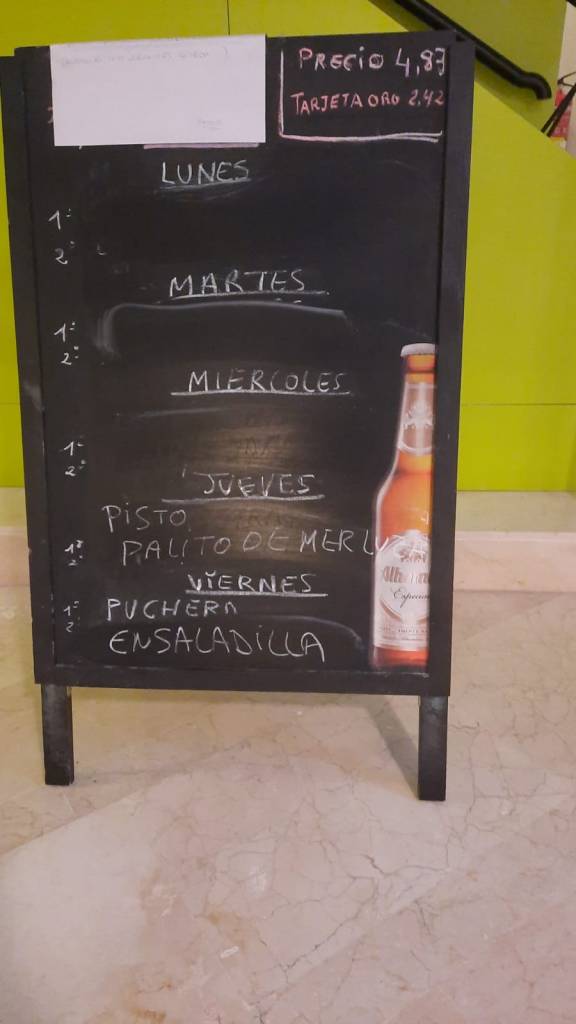 PRECIO 4,87
TARJETA ORO 2.42
LUNES
1º
2º
MARTES
1º
2º
MIERCOLES
1º
2º
JUEVES
PISTO
1º PALITO DE MERLUZA
2º
VIERNES
1º PUCHERA
2º
ENSALADILLA
Especial